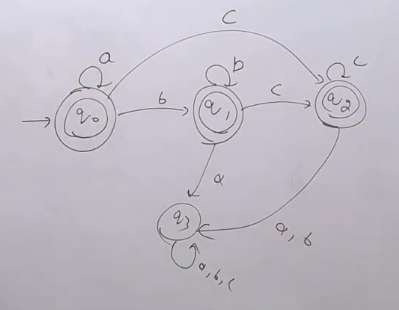 C
a
b
c
b
c
q₀
q₁
q₂
a
q₃
a, b
a, b, c